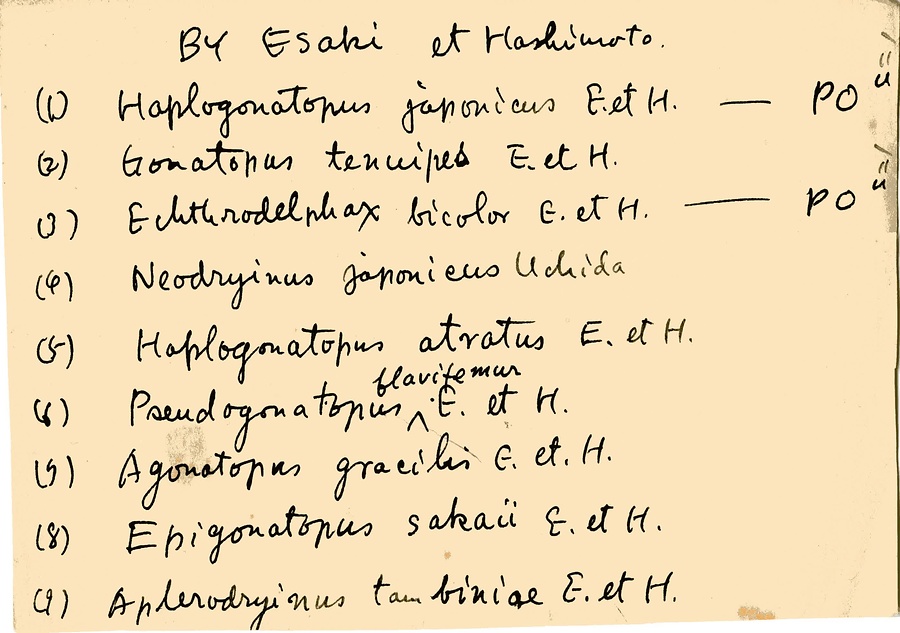 BY Esaki et Hashimoto.
(1) Haplogonatopus japonicus E. et H. — PO
(2) Gonatopus tenuipes E. et H.
(3) Echthrodelphax bicolor E. et H. — PO
(4) Neodryinus japonicus Uchida
(5) Haplogonatopus atratus E. et H.
flavifemur
(6) Pseudogonatopus ^ E. et H.
(7) Agonatopus gracilis E. et. H.
(8) Epigonatopus sakaii E. et H.
(9) Aplerodryinus tambiniae E. et H.